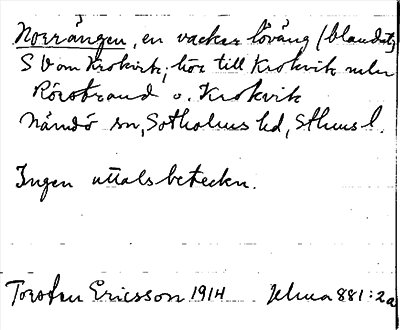 Norrängen, en vacker löväng (blandäng)
SV om Krokvik, hör till Krokvik mellan
Rörstrand o. Krokvik
Nämdö sn, Sotholms hd, Sthms l.
Ingen uttalsbeteckn.
Torsten Ericsson 1914 881:2a